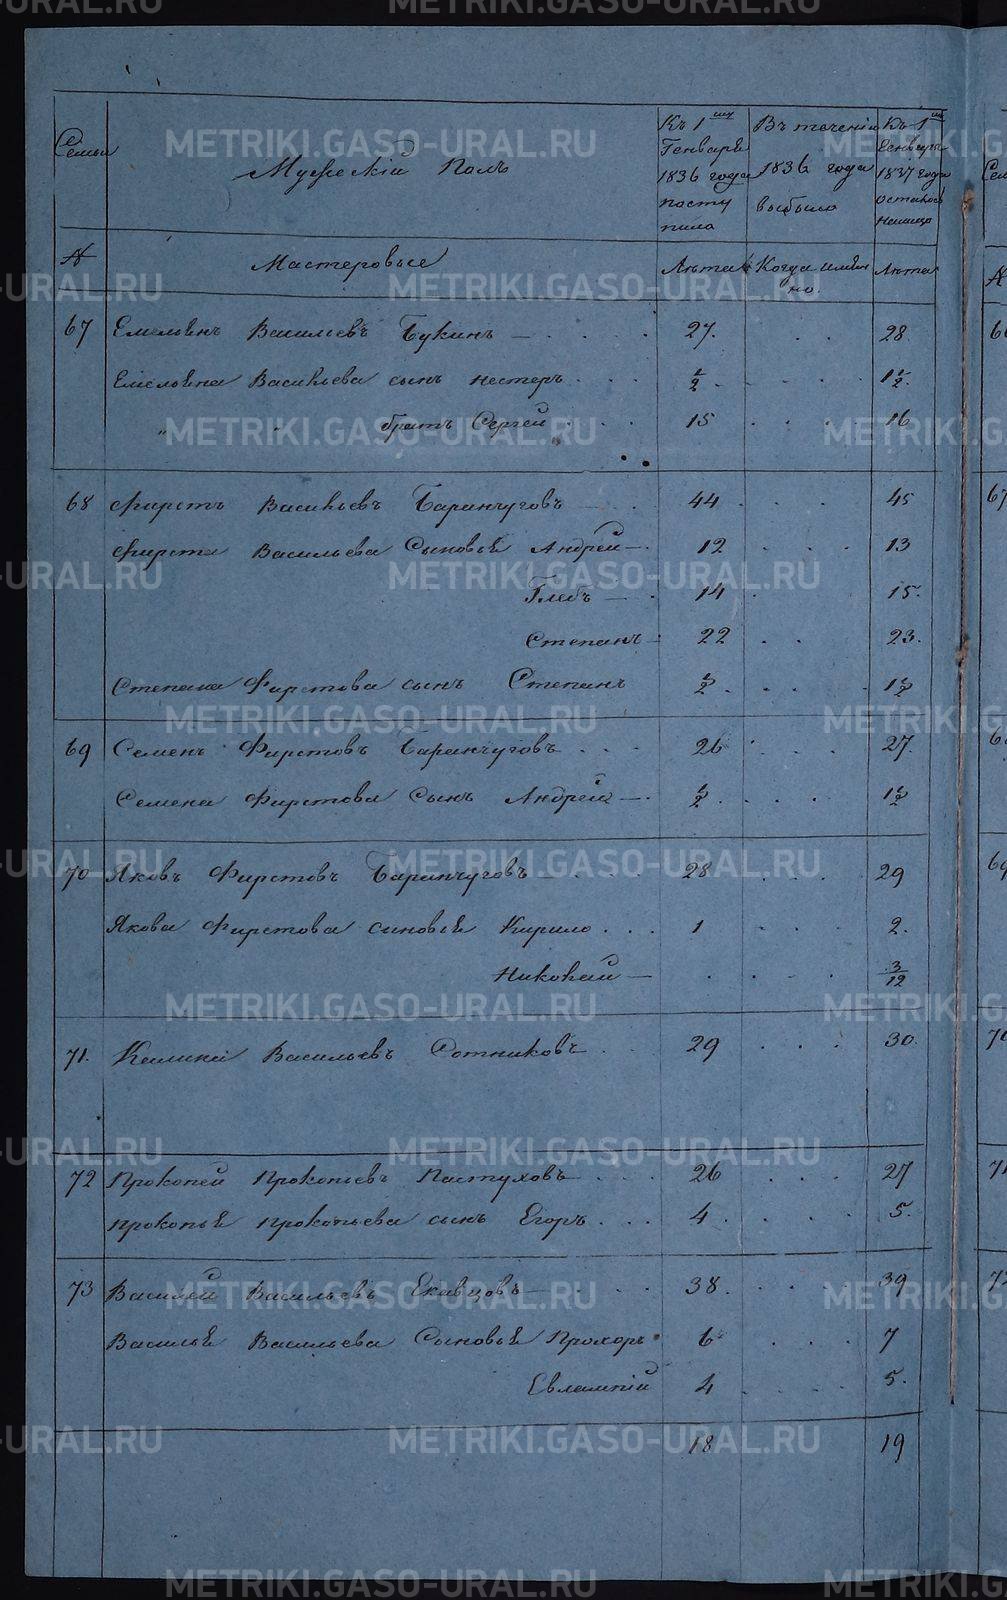 METRIKI.GASO-URAL.RU
Семьи
Мужескій Полъ
Къ 1му Генваря 1836 года поступило
Въ теченіи 1836 года выбыло
Къ 1му Генварь 1837 года осталось
№
Мастеровые
Лѣта
Когда именно.
Лѣта
67 Емельянъ Васильевъ Букинъ — 27. 28.
Емельяна Васильева сынъ Нестеръ 1/2 1 1/2.
„ „ братъ Сергей 15 16
68 Фирстъ Васильевъ Баранчуговъ — 44 45
Фирста Васильева Сыновья Андрей — 12 13
Глебъ — 14 15.
Степанъ 22 23.
Степана Фирстова сынъ Степанъ 1/2 1 1/2
69 Семенъ Фирстовъ Баранчуговъ 26 27.
Семена Фирстова Сынъ Андрей — 1/2 1 1/2
70 Яковъ Фирстовъ Баранчуговъ 28 29
Якова Фирстова сыновья Кирило 1 2.
Николай — 3/12
71. Калина Васильевъ Сотниковъ 29 30.
72 Прокопей Прокопьевъ Пастуховъ 26 27
Прокопья Прокопьева сынъ Егоръ 4 5.
73 Василей Васильевъ Екавцовъ — 38. 39
Василья Васильева Сыновья Прохоръ 6 7
Евлампій 4 5.
18 19